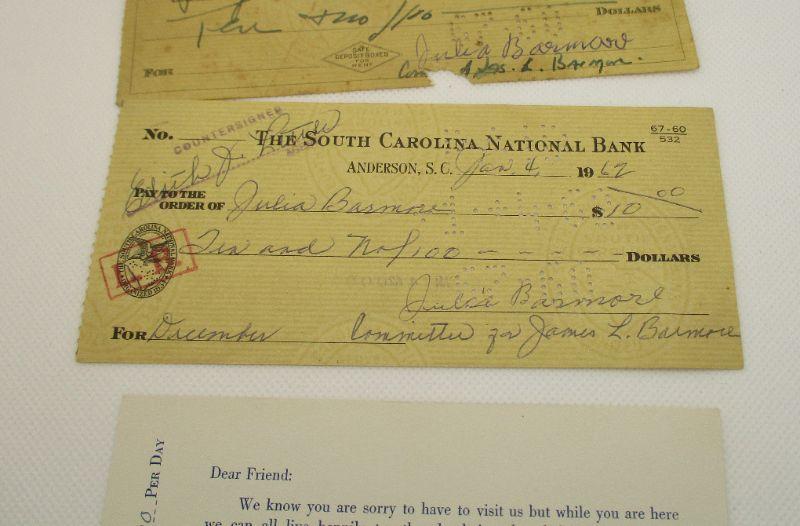 Ten + no/100 DOLLARS
SAFE
DEPOSIT BOXES
FOR
RENT
Julia Barmore
FOR Com L. Barmore
COUNTERSIGNED
No. THE SOUTH CAROLINA NATIONAL BANK 67-60
532
ANDERSON, S. C. Jan. 4, 1962
PAY TO THE
ORDER OF Julia Barmore $10 00
Ten and No/100 - - - - - - DOLLARS
Julia Barmore
FOR December Committee for James L. Barmore
PER DAY
Dear Friend:
We know you are sorry to have to visit us but while you are here